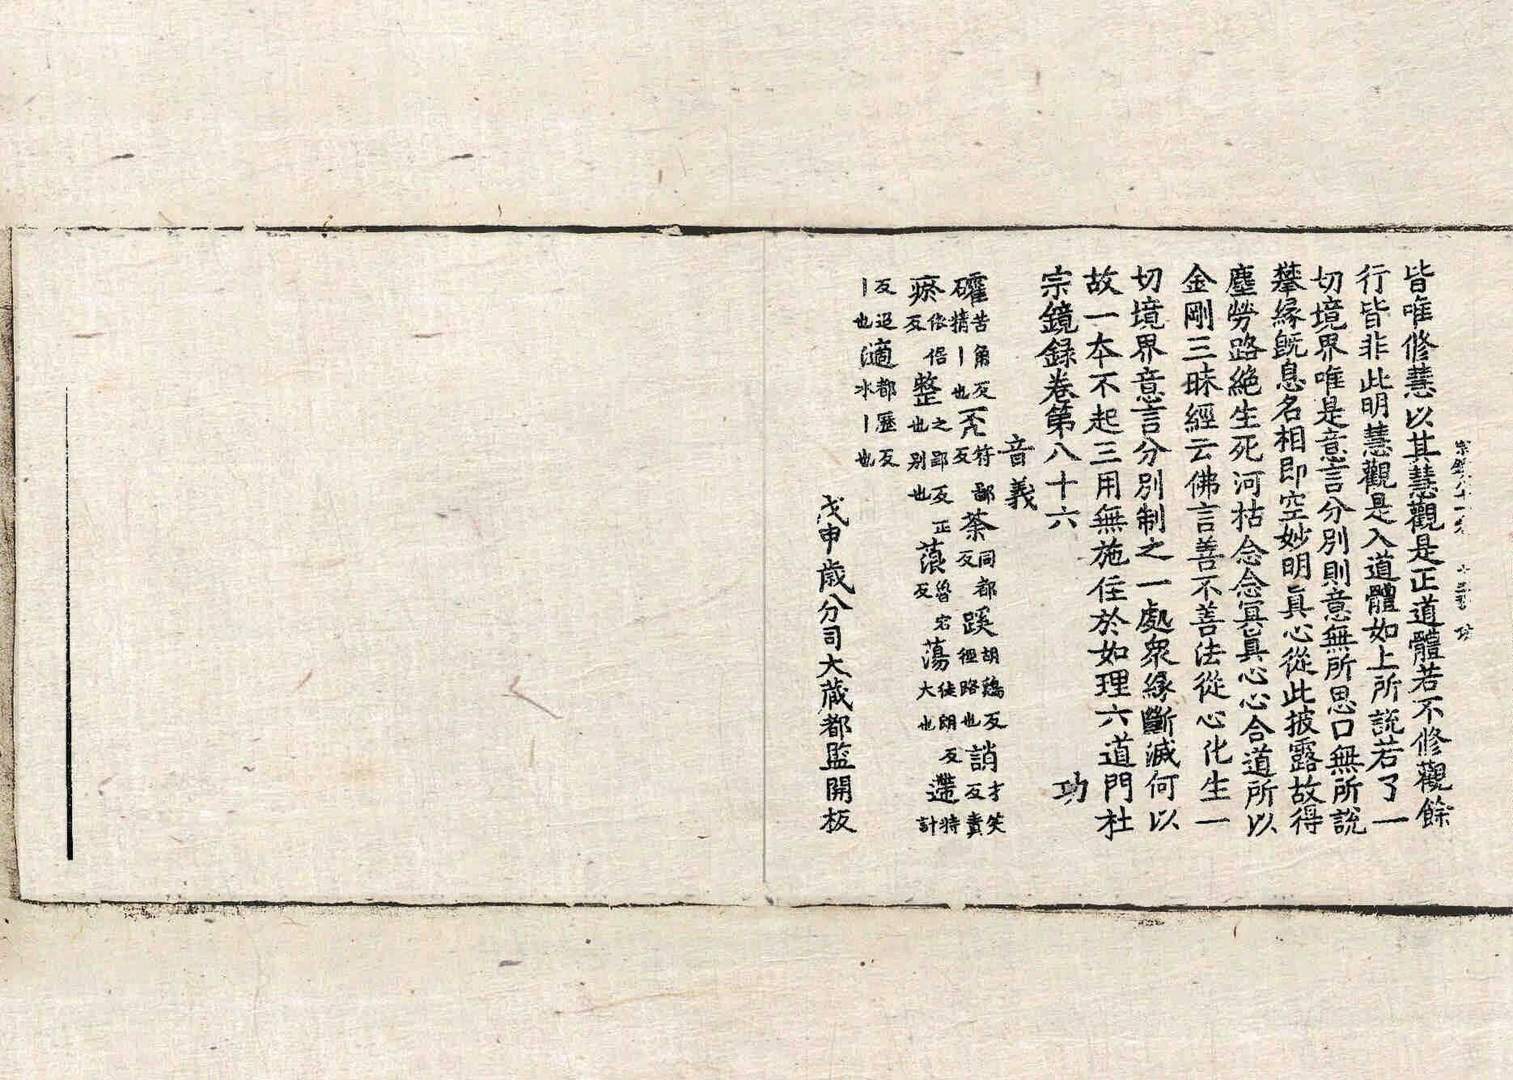 皆唯修慧以其慧觀是正道體若不修觀餘
行皆非此明慧觀是入道體如上所說若了一
切境界唯是意言分別則意無所思口無所說
攀緣既息名相即空妙明眞心從此披露故得
塵勞路絶生死河枯念念冥眞心心合道所以
金剛三昧經云佛言善不善法從心化生一
切境界意言分別制之一處衆緣斷滅何以
故一本不起三用無施住於如理六道門杜
宗鏡錄卷第八十六 功
音義
礭苦角反精丨也 符鄙反 荼同都反 蹊胡鷄反徑路也 誚才笑反責
瘀依倨反 整之郢反正也別也 蒗魯宕反 蕩徒朗反大也 遰特計
反迢丨也 適都歷反水丨也
戊申歲分司大藏都監開板